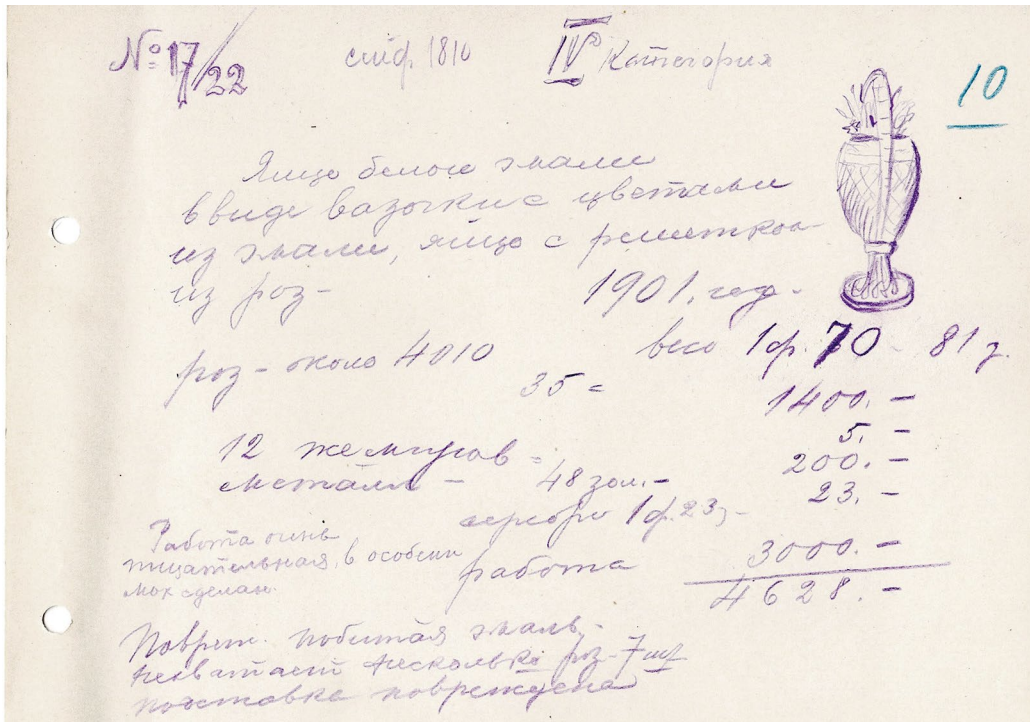 № 17/22 сейф 1810 IV Категория
10
Яйцо белой эмали
в виде вазочки с цветами
из эмали, яйцо с решеткой
из роз -
1901. год.
весь 1 ф. 70 - 81 з.
роз - около 4010
35 = 1400. -
12 жемчугов = 5. -
металл - 48 зол. - 200. -
серебро 1 ф. 23, - 23. -
Работа очень
тщательная, в особен
мох сделан.
работа 3000. -
4628. -
Повреж. побитая эмаль,
нехватает несколько роз - 7 шт
подставка повреждена